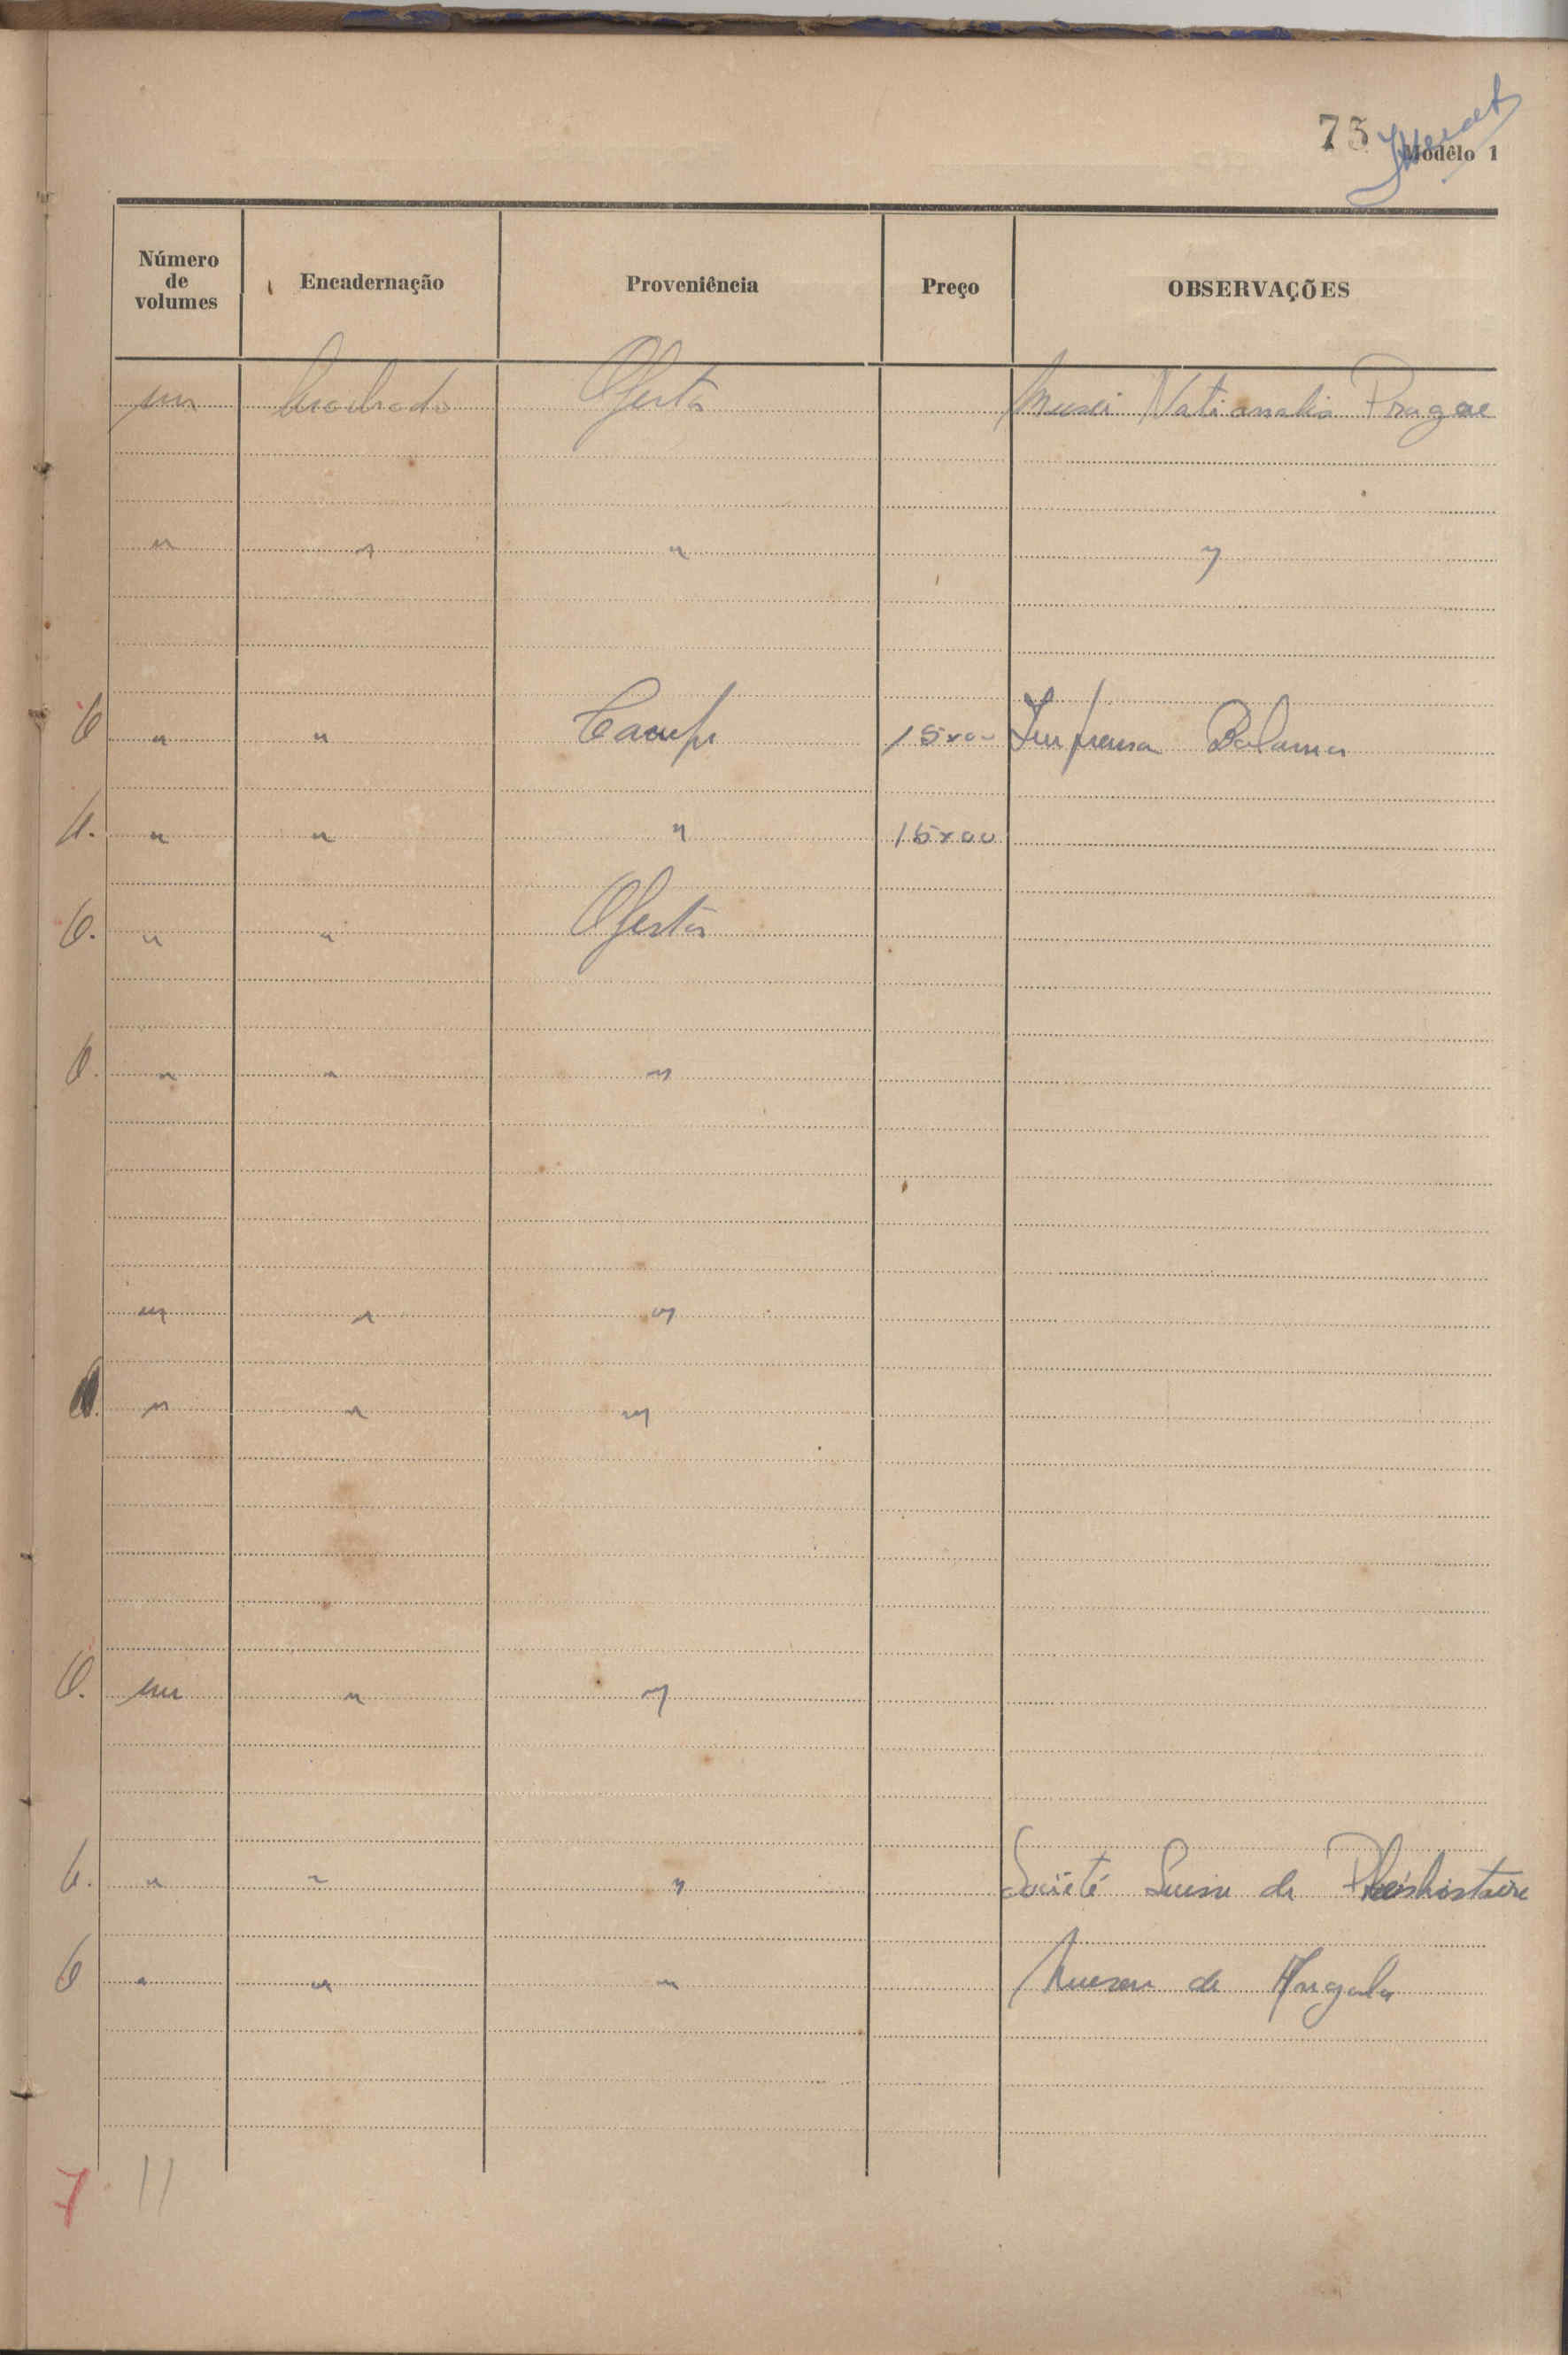 75
Modêlo 1
Número de volumes Encadernação Proveniência Preço OBSERVAÇÕES
um Brochado Oferta Musei Nationalis Pragae
" " " "
C " " Compr 15x00 Imprensa Bolama
C. " " " 15x00
O. " " Oferta
O. " " "
" " "
O. " " "
O. um " "
O. " " " Société Suisse de Préshistoire
O " " " Museu de Angola
7 11